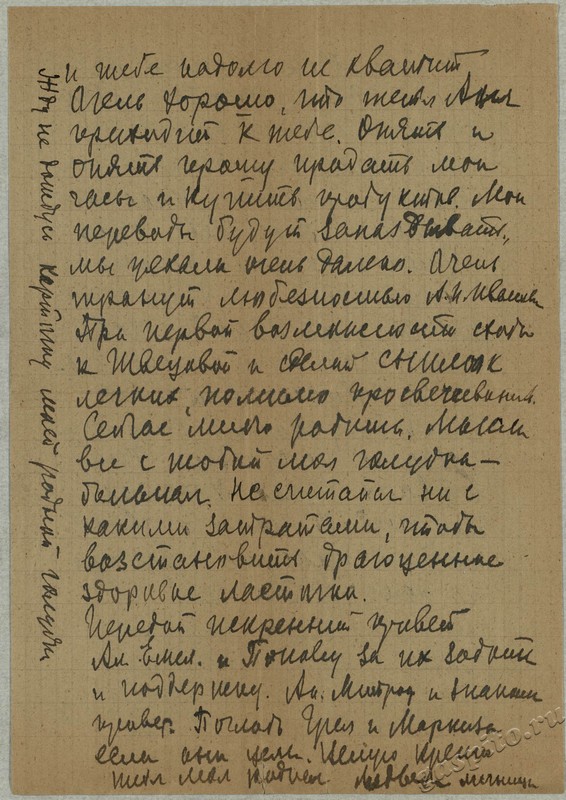 и тебе надолго не хватит
Очень хорошо, что тетя Аня
приходит к тебе. Опять и
опять прошу продать мои
часы и купить продуктов. Мои
переводы будут запаздывать,
мы уехали очень далеко. Очень
тронут любезностью А.И.
При первой возможности сходи
к Швецовой и сделай снимок
легких, помимо просвечивания.
Сейчас много работы. Мысли
все с тобой моя голубка –
больная. Не считайся ни с
какими затратами, чтобы
возстановить драгоценное
здоровье ласточки.
Передай искренний привет
Ан. Емел. и Попову за их заботы
и поддержку. Ан. Митроф и знакомым
привет. Погладь и Маркиза
если они целы. Целую крепко
тебя моя родная медведь
Жду не дождусь карточку моей родной голубки
gaspito.ru